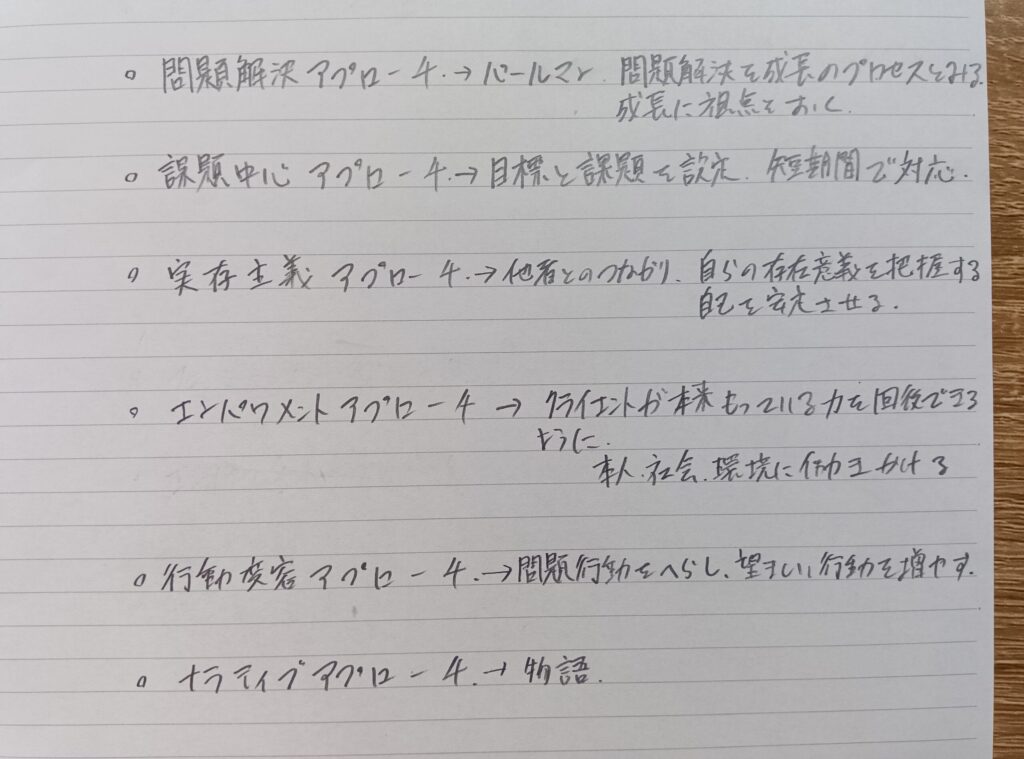 。問題解決アプローチ.→パールマン 問題解決を成長のプロセスとみる.
成長に視点をおく.
。課題中心アプローチ.→目標と課題を設定. 短期間で対応.
。実存主義アプローチ.→他者とのつながり. 自らの存在意義を把握する
自己を安定させる.
。エンパワメントアプローチ → クライエントが本来もっている力を回復できる
ように.
本人.社会.環境に働きかける
。行動変容アプローチ.→問題行動をへらし、望ましい行動を増やす.
。ナラティブアプローチ.→物語.